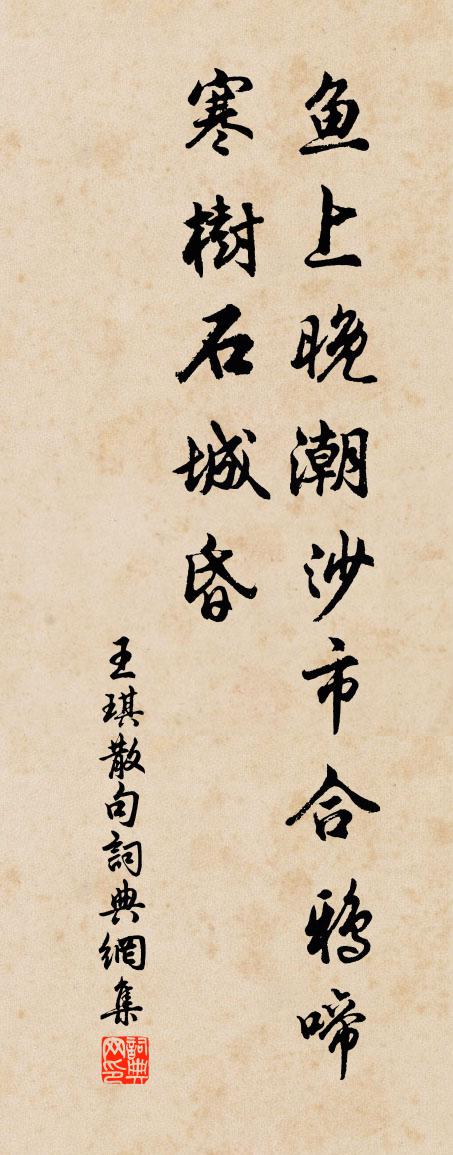 鱼上晚潮沙市合鸦啼
寒樹石城昏
王琪散句詞典網集
詞典网印